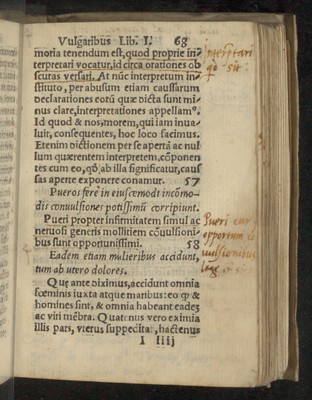 Vulgaribus Lib. I. 68
moria tenendum est, quod proprie in-
terpretari vocatur, id circa orationes ob
scuras versari. At nũc interpretum in-
stituto, per abusum etiam caussarum
declarationes eorũ quæ dicta sunt mi-
nus clare, interpretationes appellamꝰ.
Id quod & nos, morem, qui iam inua-
luit, consequentes, hoc loco facimus.
Etenim dictionem per se aperta ac nul
lum quærentem interpretem, cõponen
tes cum eo, qđ ab illa significatur, caus
sas aperte exponere conamur. 57
Pueros ferè in eiuscemodi incõmo-
dis conuulsiones potissimũ corripiunt.
Pueri propter infirmitatem simul ac
neruosi generis mollitiem cõuulsioni-
bus sunt opportunissimi. 58
Eadem etiam mulieribus accidunt,
tum ab utero dolores.
Quę ante diximus, accidunt omnia
fœminis iuxta atque maribus: eo ꝙ &
homines sint, & omnia habeant eadẽ
ac viri mẽbra. Quatenus vero eximia
illis pars, vterus suppedita:, hactenus
I iiij
Interpretari
qđ sit.
Pueri cur
opportuni cõ
vulsionibus